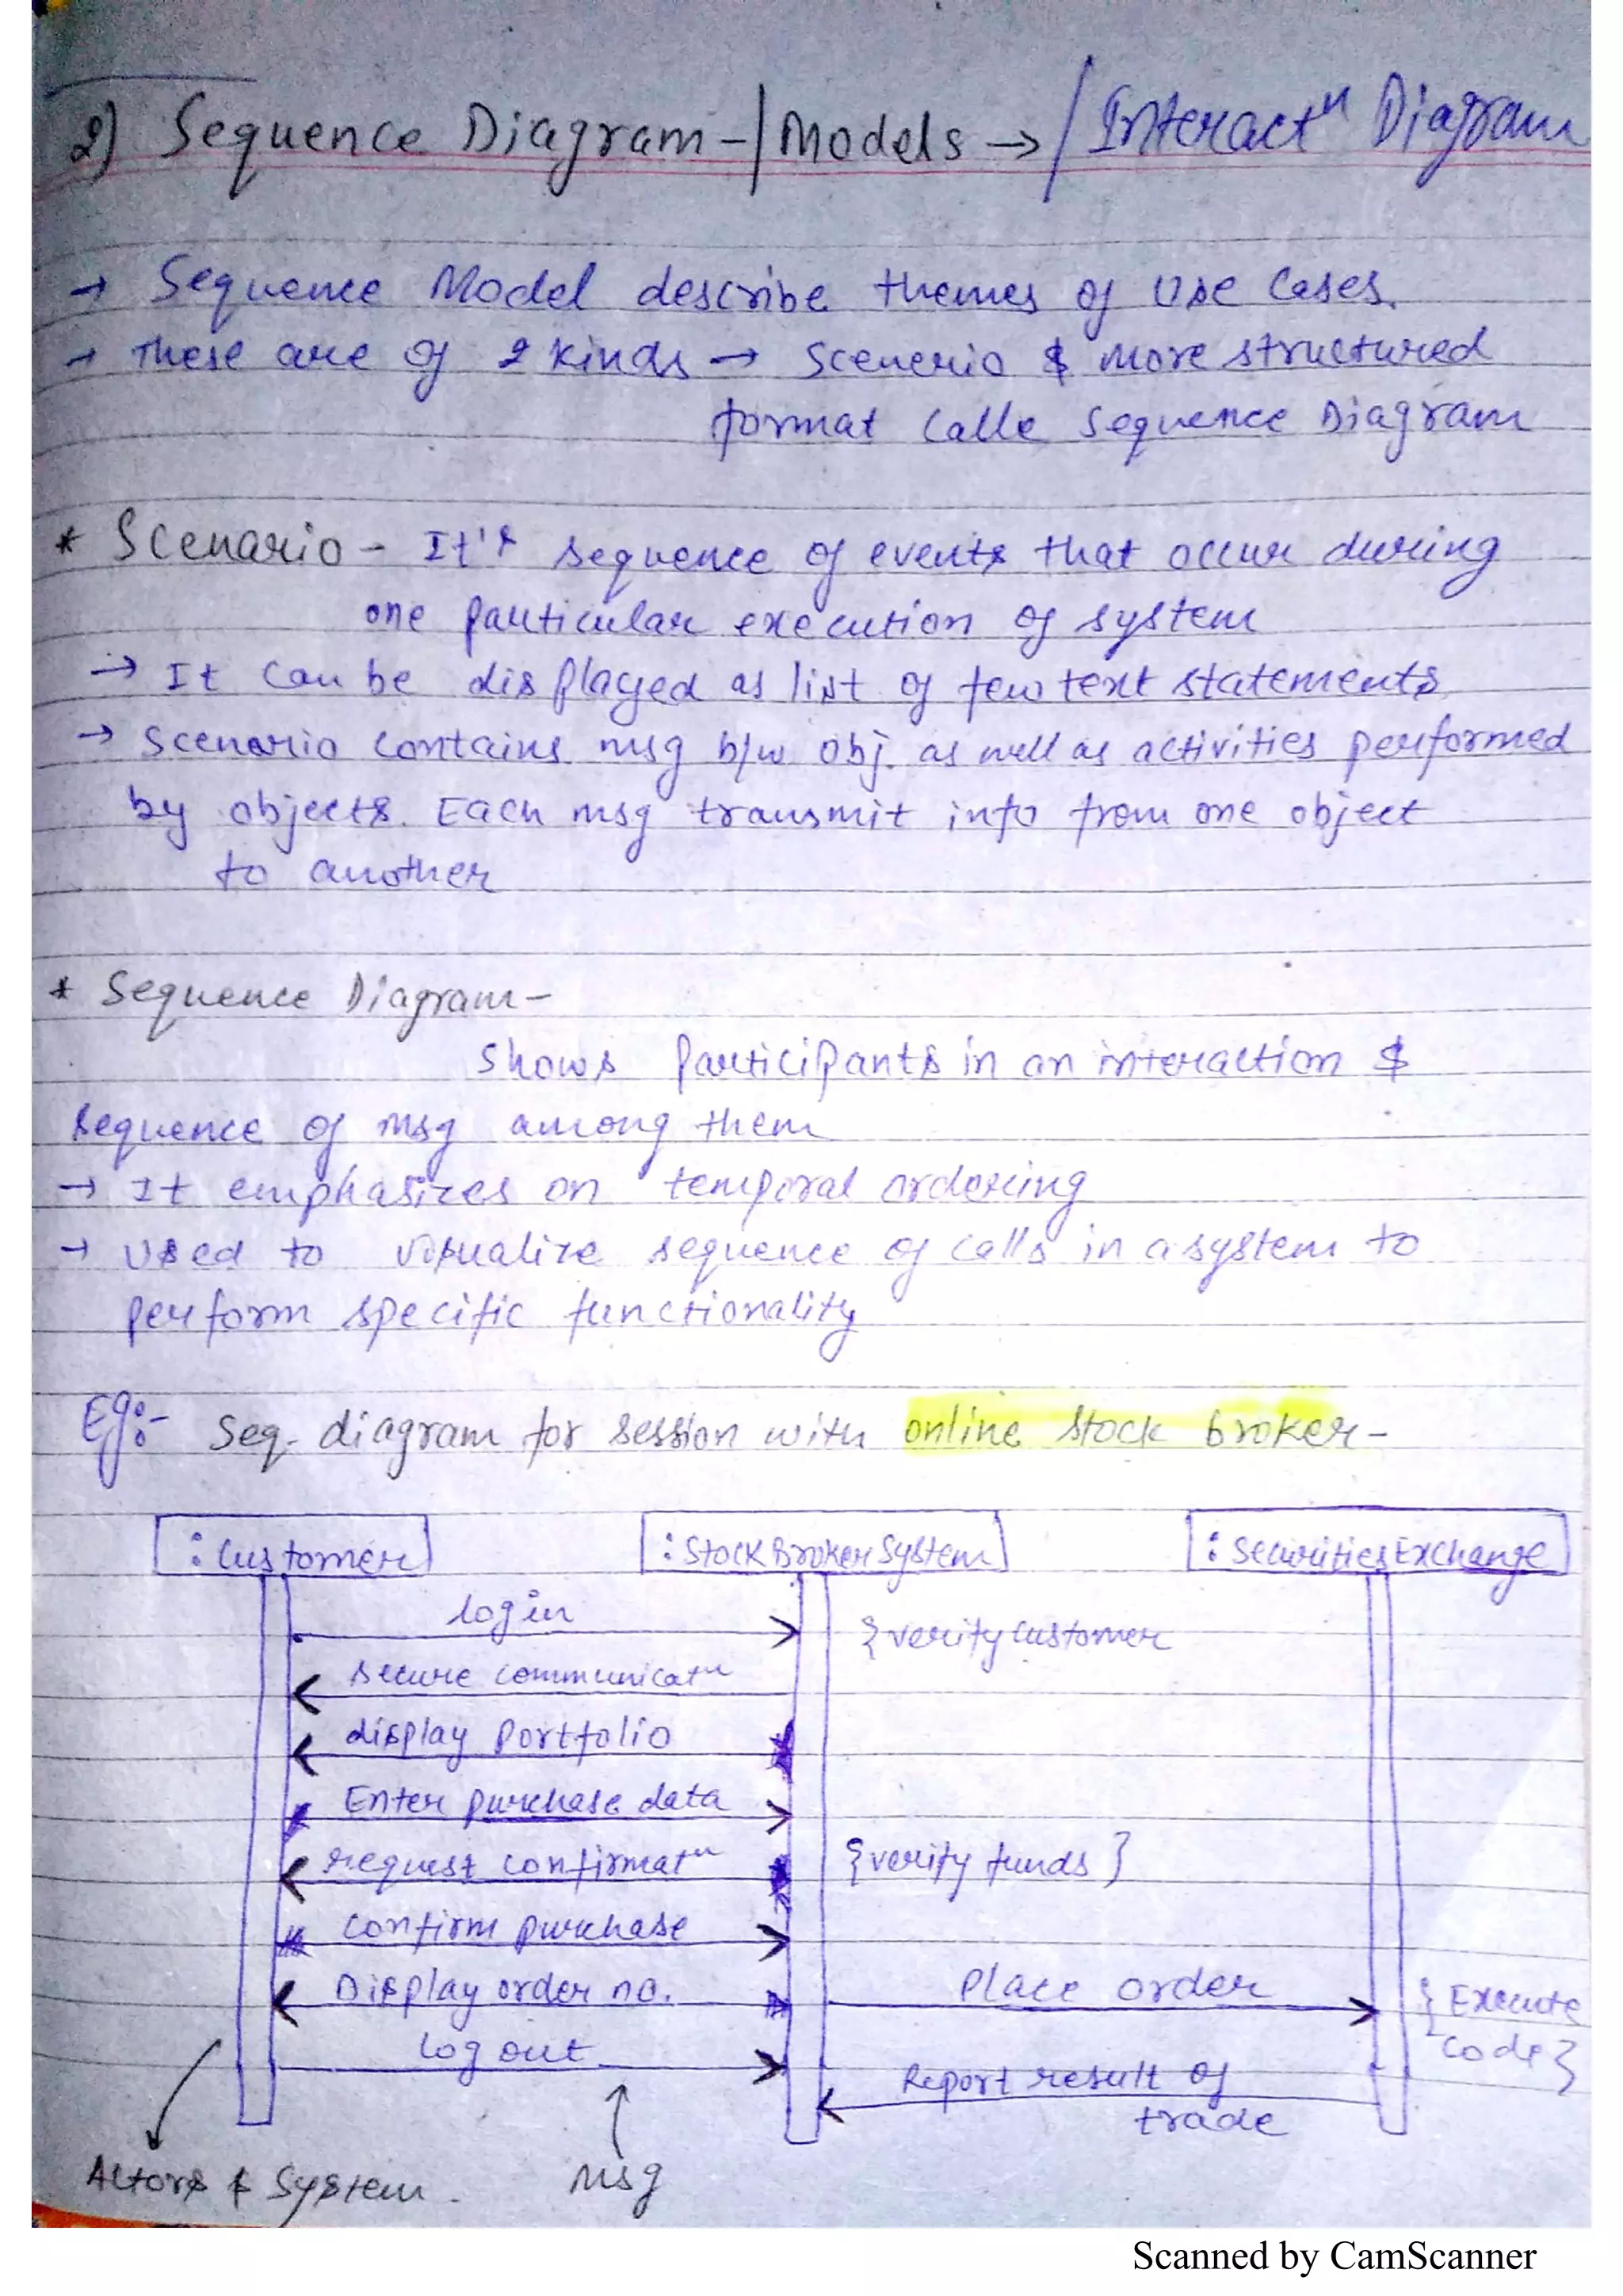 2) Sequence Diagram-/Models → / Interactⁿ Diagram
→ Sequence Model describe themes of Use Cases.
→ These are of 2 kinds → Scenerio & more structured
format calle Sequence Diagram
* Scenario - It's sequence of events that occur during
one particular execution of system
→ It can be displayed as list of few text statements
→ Scenario contains msg b/w obj. as well as activities performed
by objects. Each msg transmit info from one object
to another
* Sequence Diagram-
Shows participants in an interaction &
sequence of msg among them
→ It emphasizes on temporal ordering
→ Used to visualize sequence of calls in a system to
perform specific functionality
Eg:- Seq. diagram for session with online stock broker-
:Customer :StockBrokerSystem :SecuritiesExchange
login {verify customer
secure communicatⁿ
display portfolio
Enter purchase data
request confirmatⁿ {verify funds}
confirm purchase
Display order no. Place order {Execute
code}
log out
Report result of
trade
Actors & System. msg
Scanned by CamScanner